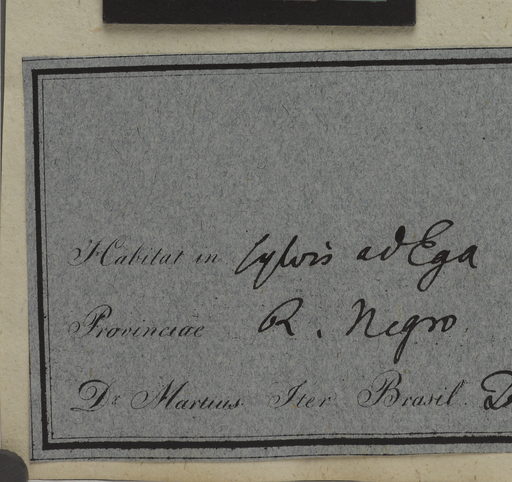 Habitat in sylvis ad Ega
Provinciae R. Negro
Dr Martius Iter Brasil.